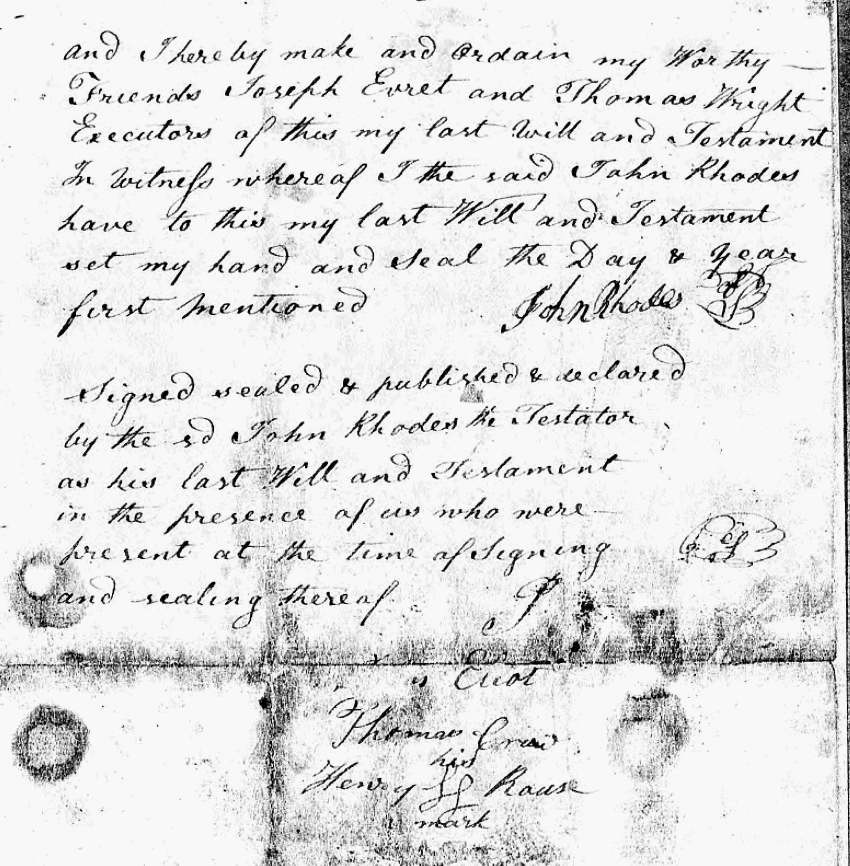 and I hereby make and Ordain my Worthy
Friends Joseph Evret and Thomas Wright
Executors of this my last Will and Testament
In Witness whereof I the said John Rhodes
have to this my last Will and Testament
set my hand and Seal the Day & Year
first Mentioned John Rhodes
Signed sealed & published & declared
by the sd John Rhodes the Testator
as his last Will and Testament
in the presence of us who were
present at the time of Signing
and sealing thereof
Thomas
his
Henry Rouse
mark